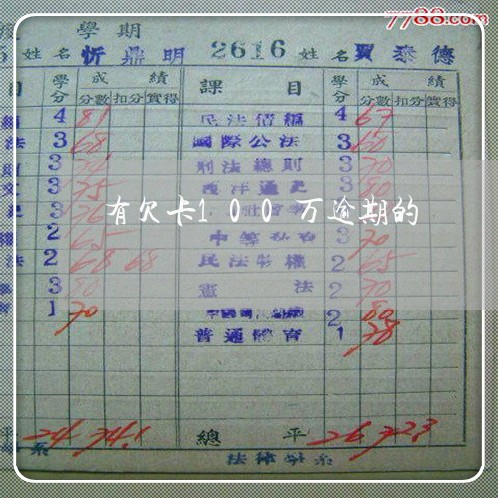 7788.com
學期
5 姓名 忻鼎明 2616 姓名 賈泰德
目 學分 成績 課目 學分 成績
分數 扣分 實得 分數 扣分 實得
4 81 民法債編 4 67
法 3 68 國際公法 3 60
則 3 刑法總則 3 70
3 75 西洋通史 3 80
有欠卡100万逾期的
權 2 65 3 70
法 2 68 68 民法物權 2 65
3 80 憲法 2 70
1 70 2 80
普通體育 1 78
平 24 74.1 總平 26 72.3
系 法律學系